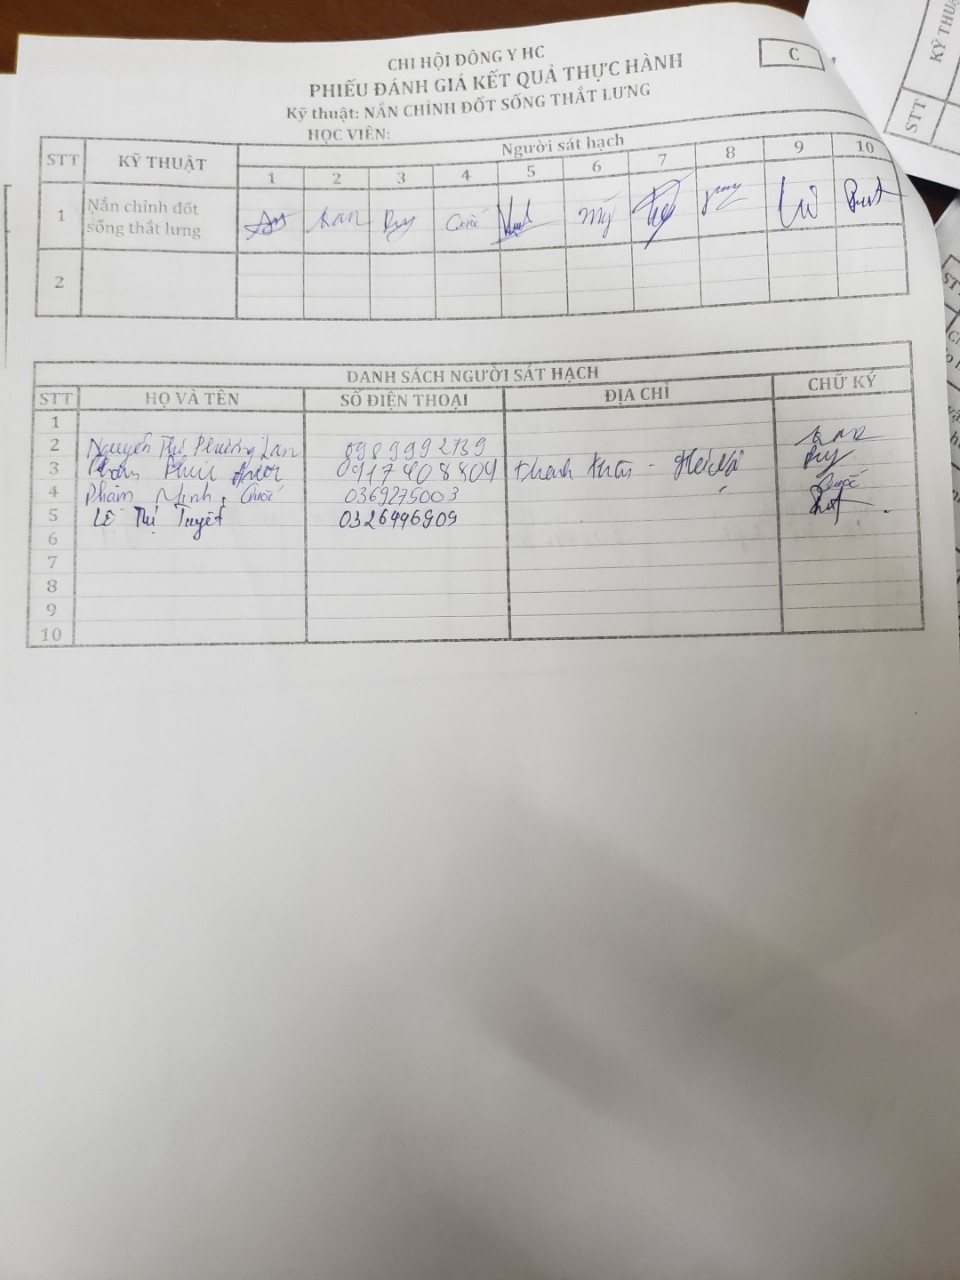 CHI HỘI ĐÔNG Y HC
C
PHIẾU ĐÁNH GIÁ KẾT QUẢ THỰC HÀNH
Kỹ thuật: NẮN CHỈNH ĐỐT SỐNG THẮT LƯNG
HỌC VIÊN:
STT KỸ THUẬT Người sát hạch
1 2 3 4 5 6 7 8 9 10
1 Nắn chỉnh đốt sống thắt lưng Lan Duy Quốc Mỹ
2
DANH SÁCH NGƯỜI SÁT HẠCH
STT HỌ VÀ TÊN SỐ ĐIỆN THOẠI ĐỊA CHỈ CHỮ KÝ
1
2 Nguyễn Thị Phương Lan 0989992739 Lan
3 0917408804 Thanh Xuân - Hà Nội Duy
4 Phạm Minh Quốc 0369275003 Quốc
5 Lê Thị Tuyết 0326996909
6
7
8
9
10
KỸ THUẬ
STT